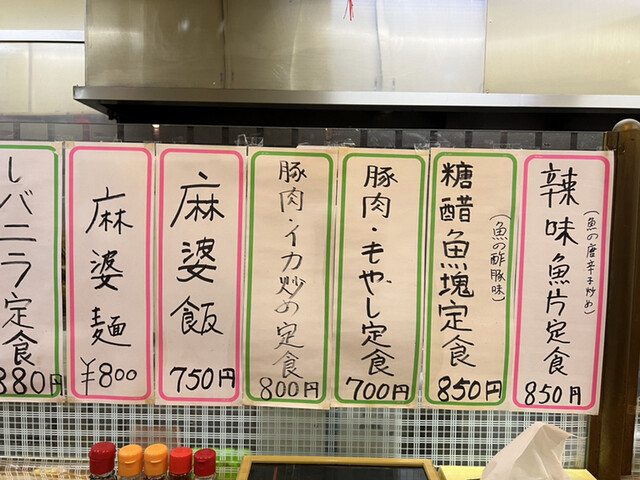 辣味魚片定食
(魚の唐辛子炒め)
850円
糖醋魚塊定食
(魚の酢豚味)
850円
豚肉・もやし定食
700円
豚肉・イカ炒め定食
800円
麻婆飯
750円
麻婆麺
¥800
レバニラ定食
880円